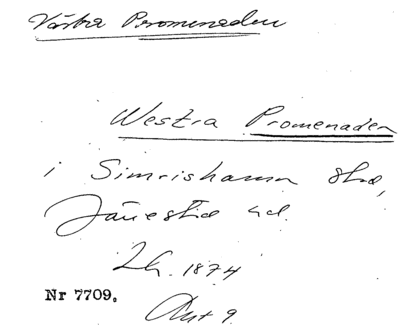 Västra Promenaden
Westra Promenaden
i Simrishamn stad,
Järrestad hd.
Lk. 1874
Nr 7709.
Akt 9